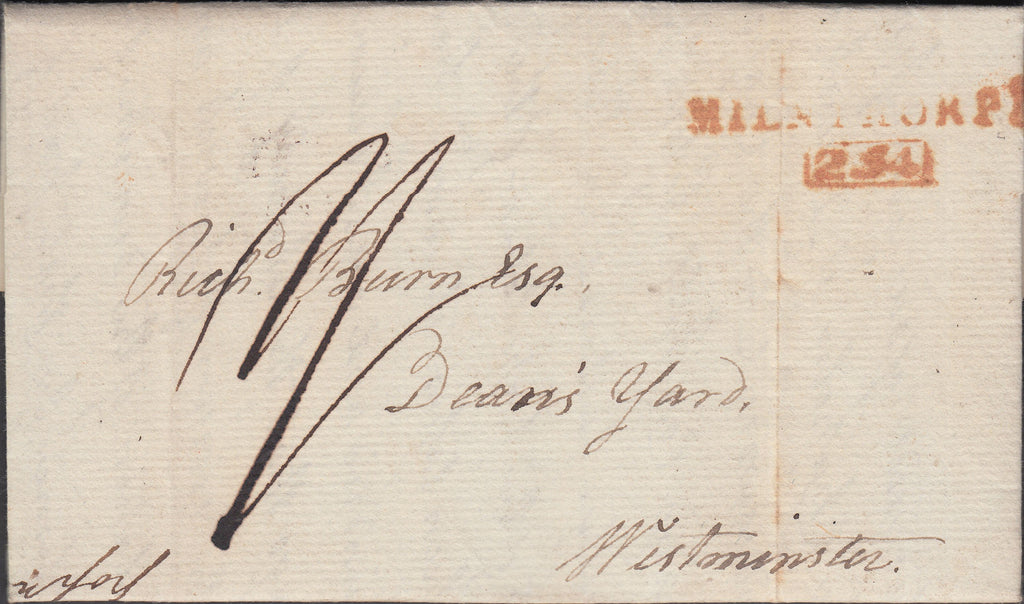 MILNTHORPE
254
Richd. Burn Esq.,
Dean's Yard,
Westminster.